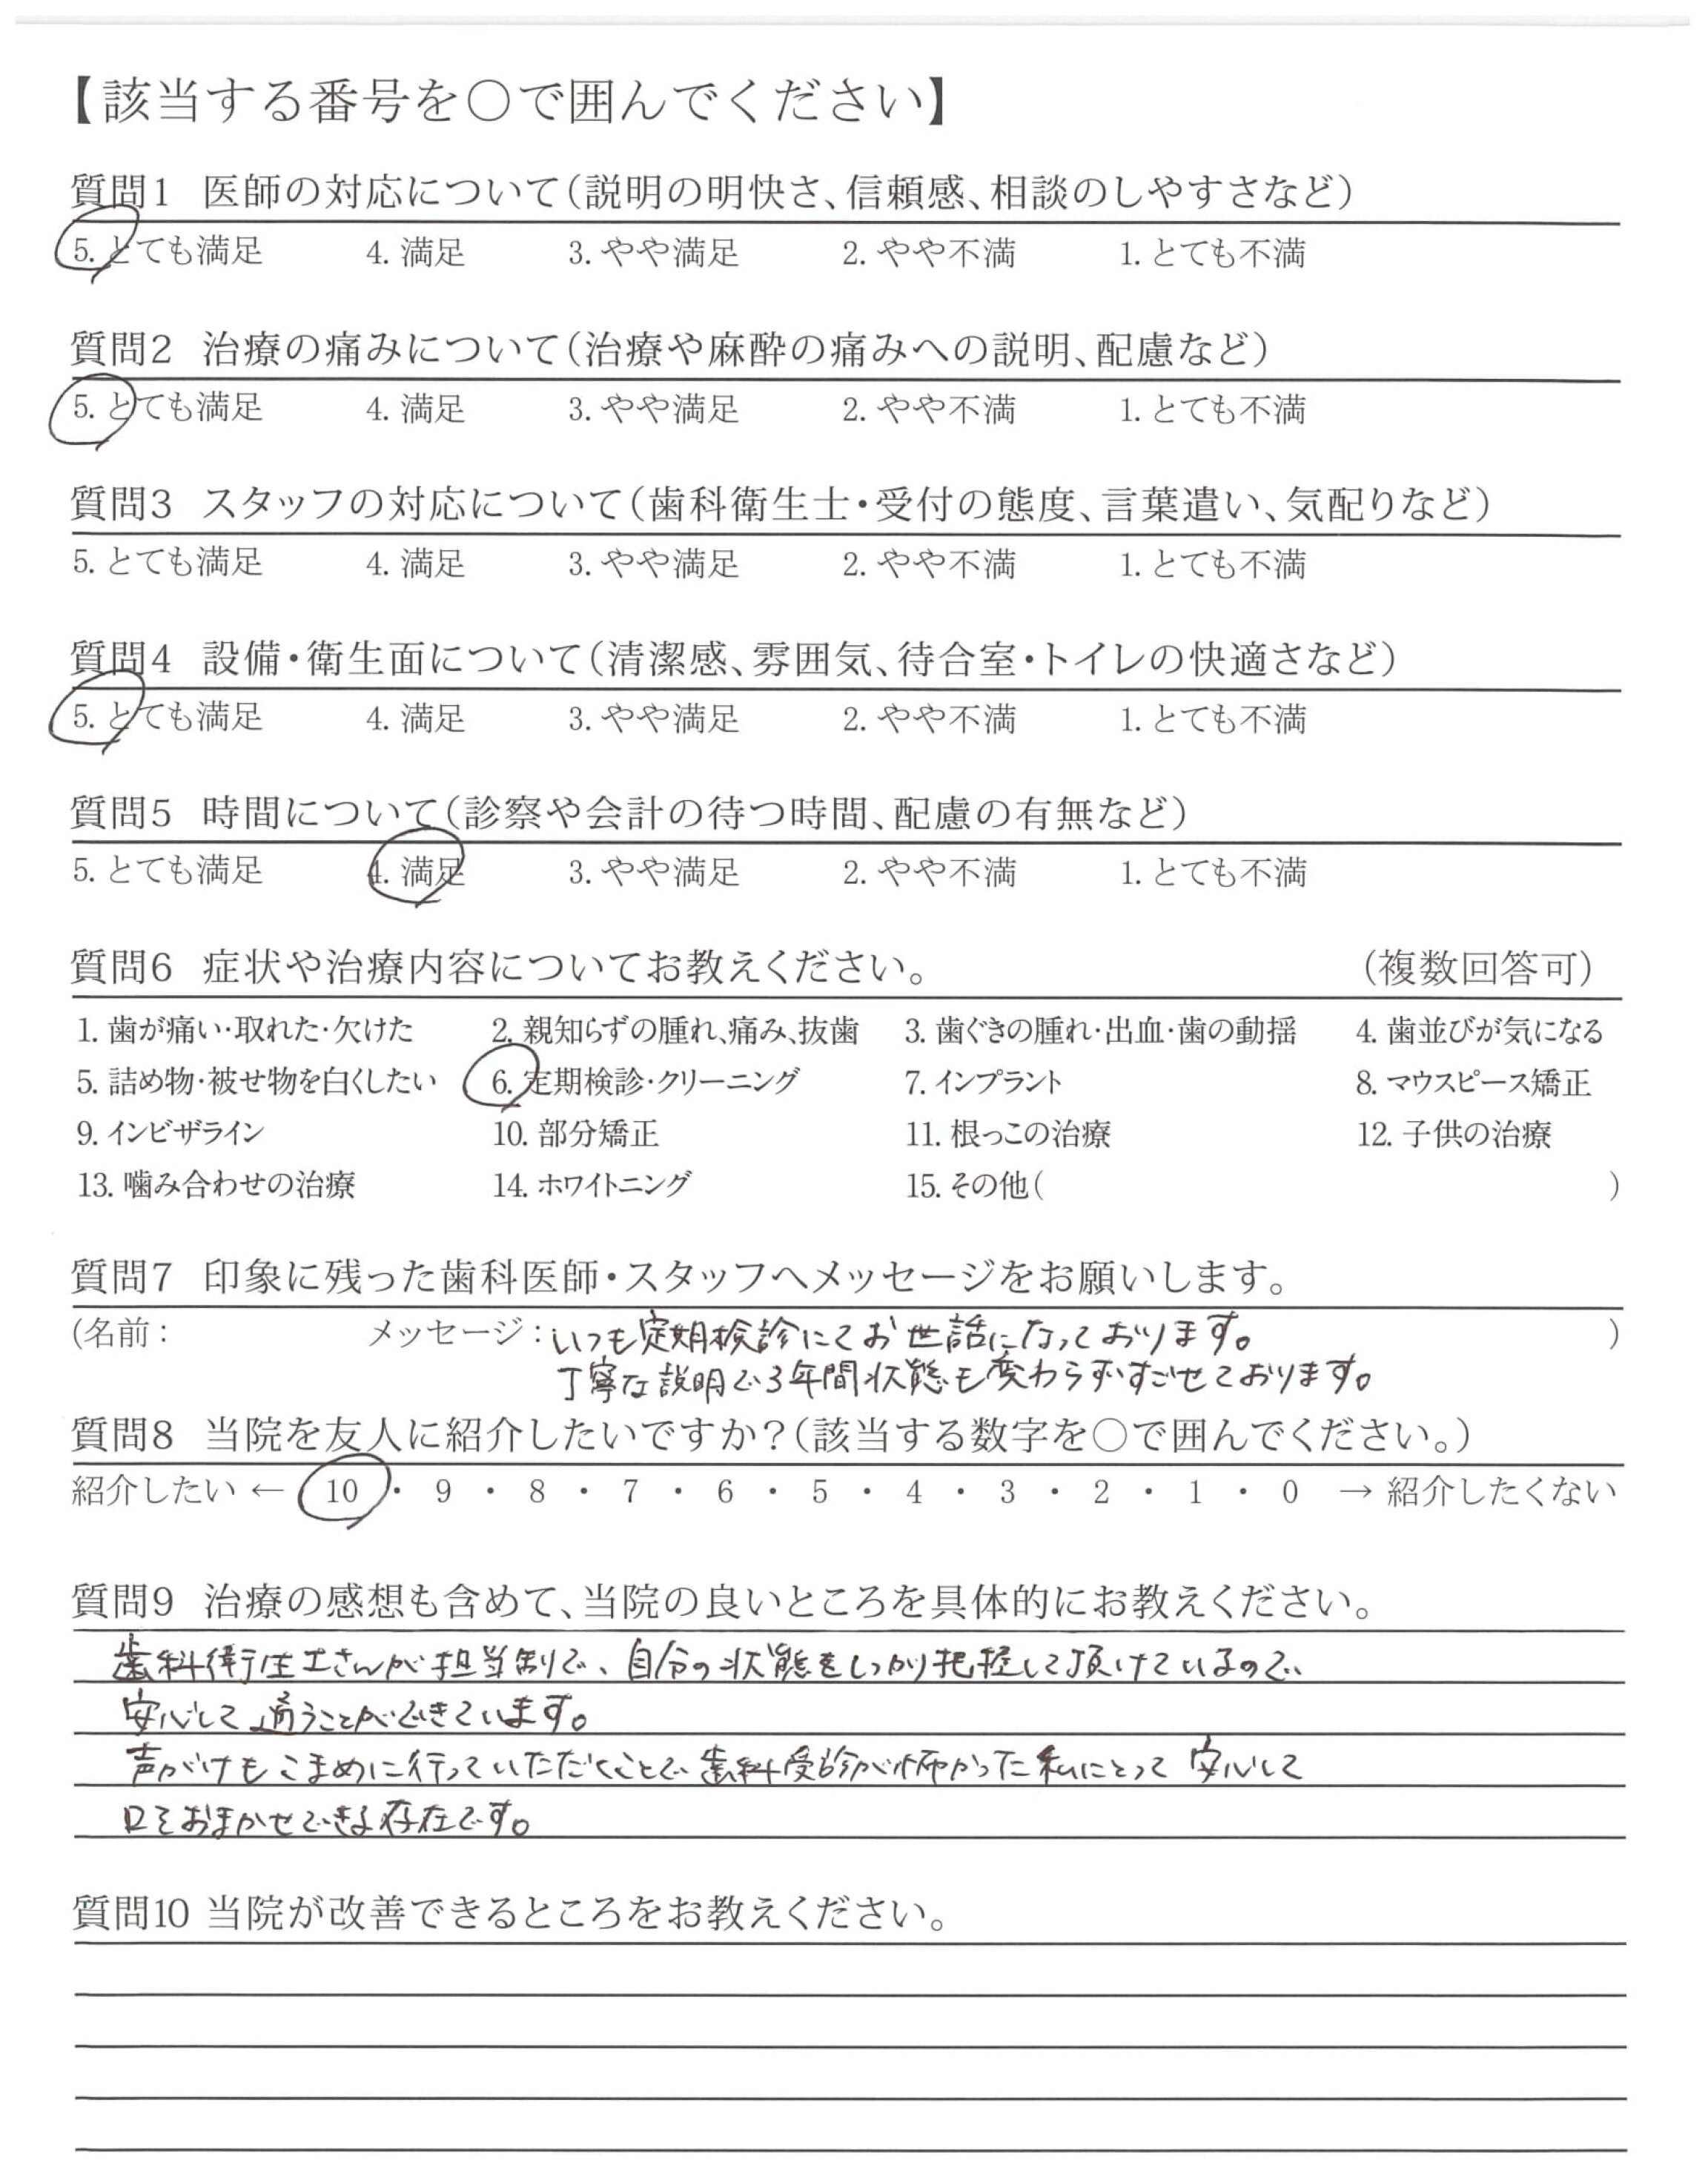 【該当する番号を○で囲んでください】
質問1 医師の対応について(説明の明快さ、信頼感、相談のしやすさなど)
5. とても満足 4. 満足 3. やや満足 2. やや不満 1. とても不満
質問2 治療の痛みについて(治療や麻酔の痛みへの説明、配慮など)
5. とても満足 4. 満足 3. やや満足 2. やや不満 1. とても不満
質問3 スタッフの対応について(歯科衛生士・受付の態度、言葉遣い、気配りなど)
5. とても満足 4. 満足 3. やや満足 2. やや不満 1. とても不満
質問4 設備・衛生面について(清潔感、雰囲気、待合室・トイレの快適さなど)
5. とても満足 4. 満足 3. やや満足 2. やや不満 1. とても不満
質問5 時間について(診察や会計の待つ時間、配慮の有無など)
5. とても満足 4. 満足 3. やや満足 2. やや不満 1. とても不満
質問6 症状や治療内容についてお教えください。 (複数回答可)
1. 歯が痛い・取れた・欠けた 2. 親知らずの腫れ、痛み、抜歯 3. 歯ぐきの腫れ・出血・歯の動揺 4. 歯並びが気になる
5. 詰め物・被せ物を白くしたい 6. 定期検診・クリーニング 7. インプラント 8. マウスピース矯正
9. インビザライン 10. 部分矯正 11. 根っこの治療 12. 子供の治療
13. 噛み合わせの治療 14. ホワイトニング 15. その他( )
質問7 印象に残った歯科医師・スタッフへメッセージをお願いします。
(名前: メッセージ:いつも定期検診にてお世話になっております。 )
丁寧な説明で3年間状態も変わらずすごせております。
質問8 当院を友人に紹介したいですか?(該当する数字を○で囲んでください。)
紹介したい ← 10 ・ 9 ・ 8 ・ 7 ・ 6 ・ 5 ・ 4 ・ 3 ・ 2 ・ 1 ・ 0 → 紹介したくない
質問9 治療の感想も含めて、当院の良いところを具体的にお教えください。
歯科衛生士さんが担当制で、自分の状態をしっかり把握して頂けているので
安心して通うことができています。
声がけもこまめに行っていただくことで歯科受診が怖かった私にとって 安心して
口をおまかせできる存在です。
質問10 当院が改善できるところをお教えください。